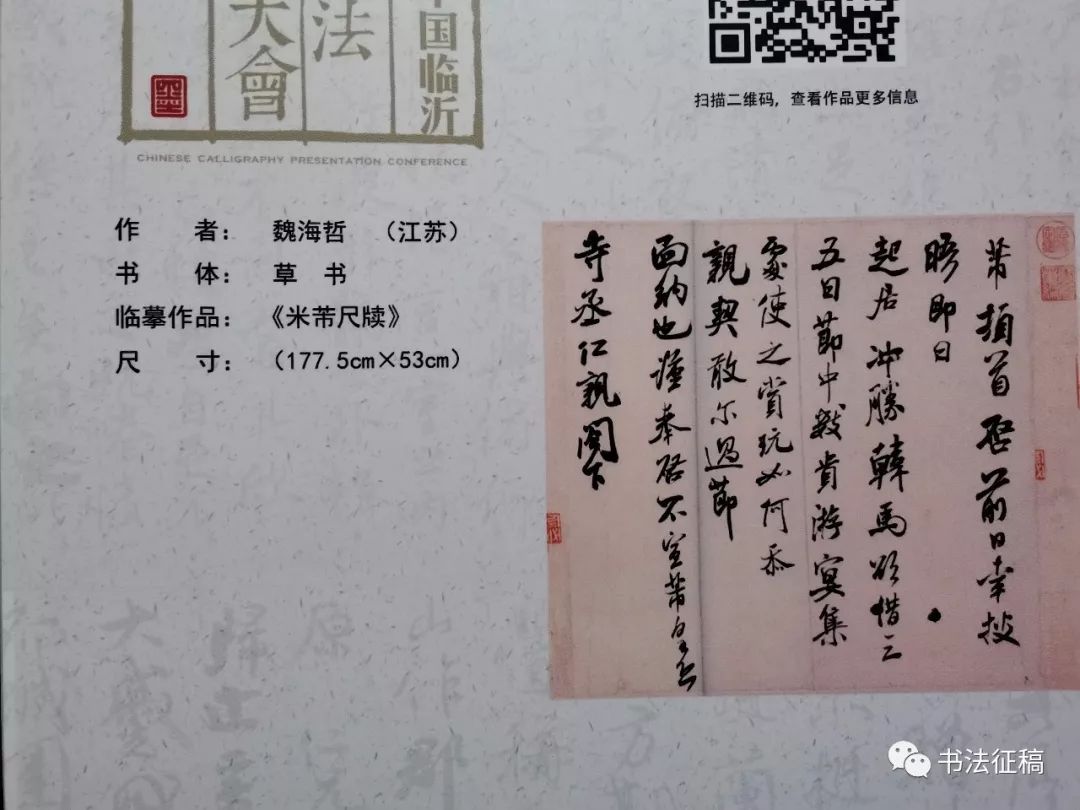 国临沂
法
大會
CHINESE CALLIGRAPHY PRESENTATION CONFERENCE
扫描二维码，查看作品更多信息
作 者： 魏海哲 （江苏）
书 体： 草 书
临摹作品： 《米芾尺牍》
尺 寸： （177.5cm×53cm）
芾頓首啓前日幸披
晤即日
起居冲勝韓馬欲借三
五日節中數貴游宴集
要使之賞玩如何忝
親契敢尔過節
面納也謹奉啓不宣芾白
寺丞仁親閣下
书法征稿